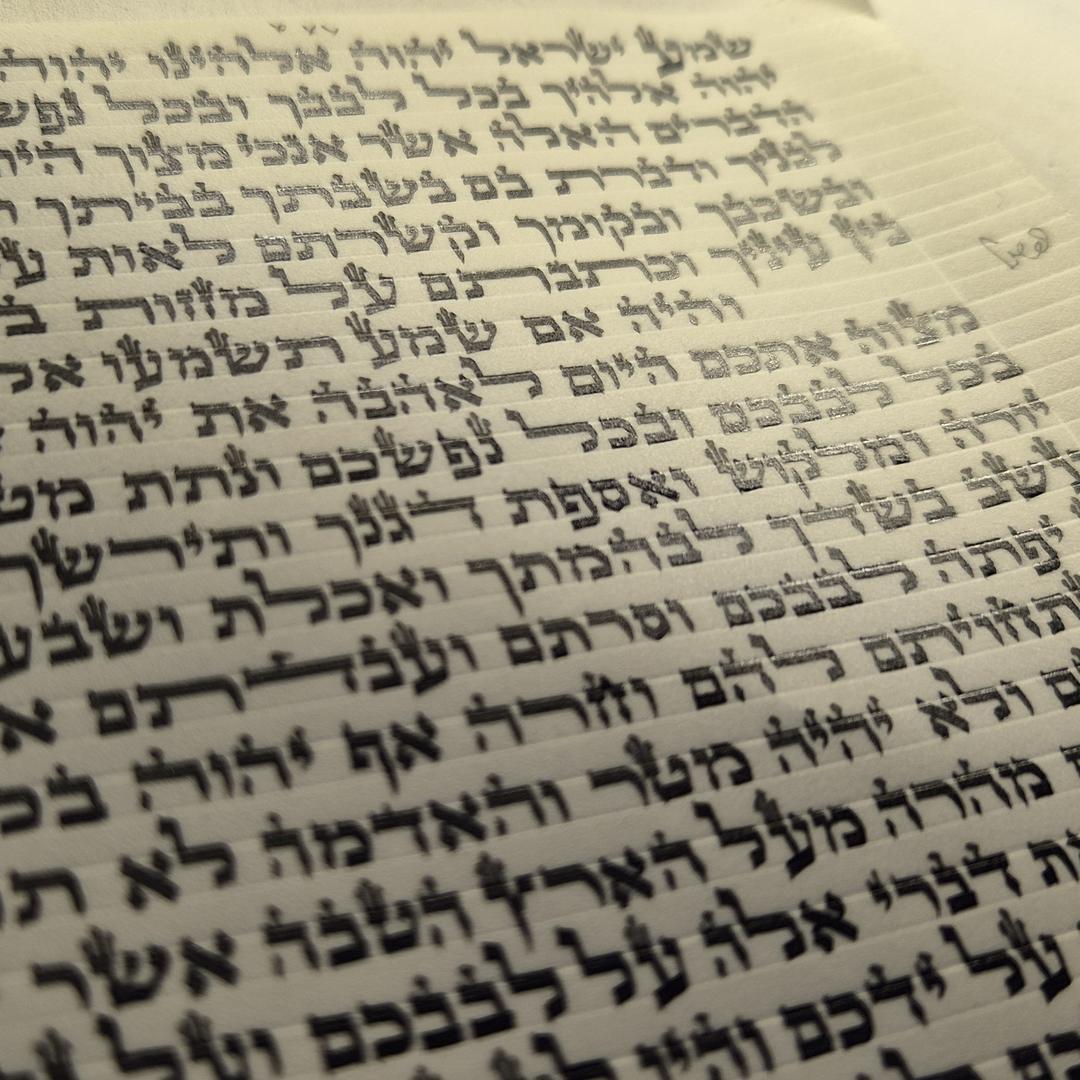 שמע ישראל יהוה אלהינו יהוה
יהוה אלהיך בכל לבבך ובכל
הדברים האלה אשר אנכי מצוך
לבניך ודברת בם בשבתך בביתך
ובשכבך ובקומך וקשרתם לאות
בין עיניך וכתבתם על מזזות
והיה אם שמע תשמעו אל
מצוה אתכם היום לאהבה את יהוה
בכל לבבכם ובכל נפשכם ונתתי
יורה ומלקוש ואספת דגנך ותירשך
עשב בשדך לבהמתך ואכלת
יפתה לבבכם וסרתם ועבדתם
להם וחרה אף יהוה
ולא יהיה מטר והאדמה לא
מהרה מעל הארץ הטבה אשר
דברי אלה על לבבכם ועל
על ידכם והיו